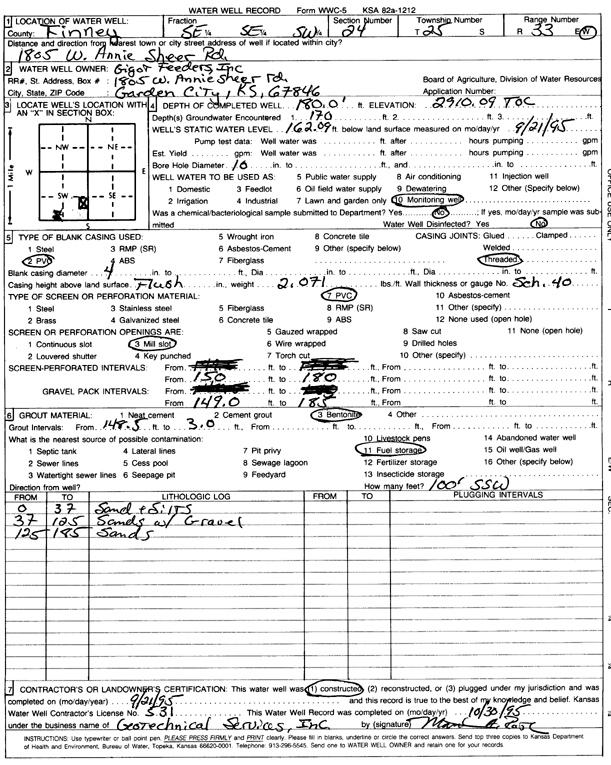 WATER WELL RECORD Form WWC-5 KSA 82a-1212
1 LOCATION OF WATER WELL: Fraction Section Number Township Number Range Number
County: Finney SE ¼ SE ¼ SW ¼ 24 T 25 S R 33 E/W
Distance and direction from nearest town or city street address of well if located within city?
1805 W. Annie Sheer Rd.
2 WATER WELL OWNER: Gigot Feeders Inc
RR#, St. Address, Box # : 1805 W. Annie Sheer rd. Board of Agriculture, Division of Water Resources
City, State, ZIP Code : Garden City, KS, 67846 Application Number:
3 LOCATE WELL'S LOCATION WITH AN "X" IN SECTION BOX:
N
NW NE
W E
SW SE
S
1 Mile
4 DEPTH OF COMPLETED WELL 180.0' ft. ELEVATION: 2910.09 TOC
Depth(s) Groundwater Encountered 1 170 ft. 2 ft. 3 ft.
WELL'S STATIC WATER LEVEL 162.09 ft. below land surface measured on mo/day/yr 9/21/95
Pump test data: Well water was ft. after hours pumping gpm
Est. Yield gpm: Well water was ft. after hours pumping gpm
Bore Hole Diameter 10 in. to ft., and in. to ft.
WELL WATER TO BE USED AS: 5 Public water supply 8 Air conditioning 11 Injection well
1 Domestic 3 Feedlot 6 Oil field water supply 9 Dewatering 12 Other (Specify below)
2 Irrigation 4 Industrial 7 Lawn and garden only 10 Monitoring well
Was a chemical/bacteriological sample submitted to Department? Yes No ; If yes, mo/day/yr sample was submitted
Water Well Disinfected? Yes No
5 TYPE OF BLANK CASING USED: 5 Wrought iron 8 Concrete tile CASING JOINTS: Glued Clamped
1 Steel 3 RMP (SR) 6 Asbestos-Cement 9 Other (specify below) Welded
2 PVC 4 ABS 7 Fiberglass Threaded
Blank casing diameter 4 in. to ft., Dia in. to ft., Dia in. to ft.
Casing height above land surface Flush in., weight 2.071 lbs./ft. Wall thickness or gauge No. Sch. 40
TYPE OF SCREEN OR PERFORATION MATERIAL: 7 PVC 10 Asbestos-cement
1 Steel 3 Stainless steel 5 Fiberglass 8 RMP (SR) 11 Other (specify)
2 Brass 4 Galvanized steel 6 Concrete tile 9 ABS 12 None used (open hole)
SCREEN OR PERFORATION OPENINGS ARE: 5 Gauzed wrapped 8 Saw cut 11 None (open hole)
1 Continuous slot 3 Mill slot 6 Wire wrapped 9 Drilled holes
2 Louvered shutter 4 Key punched 7 Torch cut 10 Other (specify)
SCREEN-PERFORATED INTERVALS: From ft. to ft., From ft. to ft.
From 150 ft. to 180 ft., From ft. to ft.
GRAVEL PACK INTERVALS: From ft. to ft., From ft. to ft.
From 149.0 ft. to 185 ft., From ft. to ft.
6 GROUT MATERIAL: 1 Neat cement 2 Cement grout 3 Bentonite 4 Other
Grout Intervals: From 148.5 ft. to 3.0 ft., From ft. to ft., From ft. to ft.
What is the nearest source of possible contamination: 10 Livestock pens 14 Abandoned water well
1 Septic tank 4 Lateral lines 7 Pit privy 11 Fuel storage 15 Oil well/Gas well
2 Sewer lines 5 Cess pool 8 Sewage lagoon 12 Fertilizer storage 16 Other (specify below)
3 Watertight sewer lines 6 Seepage pit 9 Feedyard 13 Insecticide storage
Direction from well? How many feet? 100' SSW
FROM TO LITHOLOGIC LOG FROM TO PLUGGING INTERVALS
0 37 Sand + Silts
37 125 Sands w/ Gravel
125 185 Sands
7 CONTRACTOR'S OR LANDOWNER'S CERTIFICATION: This water well was (1) constructed, (2) reconstructed, or (3) plugged under my jurisdiction and was
completed on (mo/day/year) 9/21/95 and this record is true to the best of my knowledge and belief. Kansas
Water Well Contractor's License No. 531 This Water Well Record was completed on (mo/day/yr) 10/30/95
under the business name of Geotechnical Services, Inc by (signature)
INSTRUCTIONS: Use typewriter or ball point pen. PLEASE PRESS FIRMLY and PRINT clearly. Please fill in blanks, underline or circle the correct answers. Send top three copies to Kansas Department
of Health and Environment, Bureau of Water, Topeka, Kansas 66620-0001. Telephone: 913-296-5545. Send one to WATER WELL OWNER and retain one for your records.
OFFICE USE ONLY